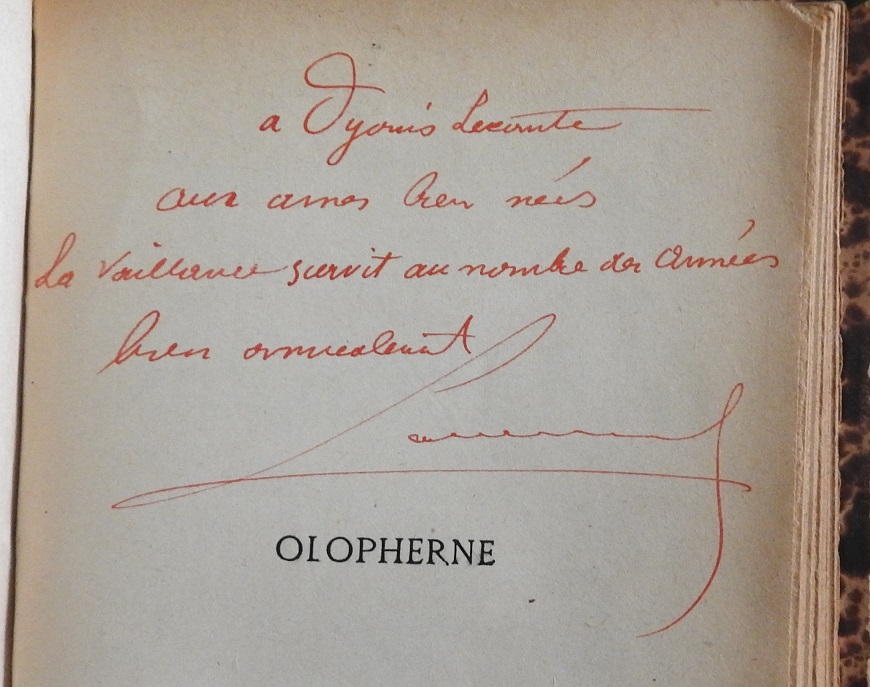 a Dyonis Lecomte
aux ames bien nées
La Vaillance survit au nombre des années
bien amicalement
OLOPHERNE